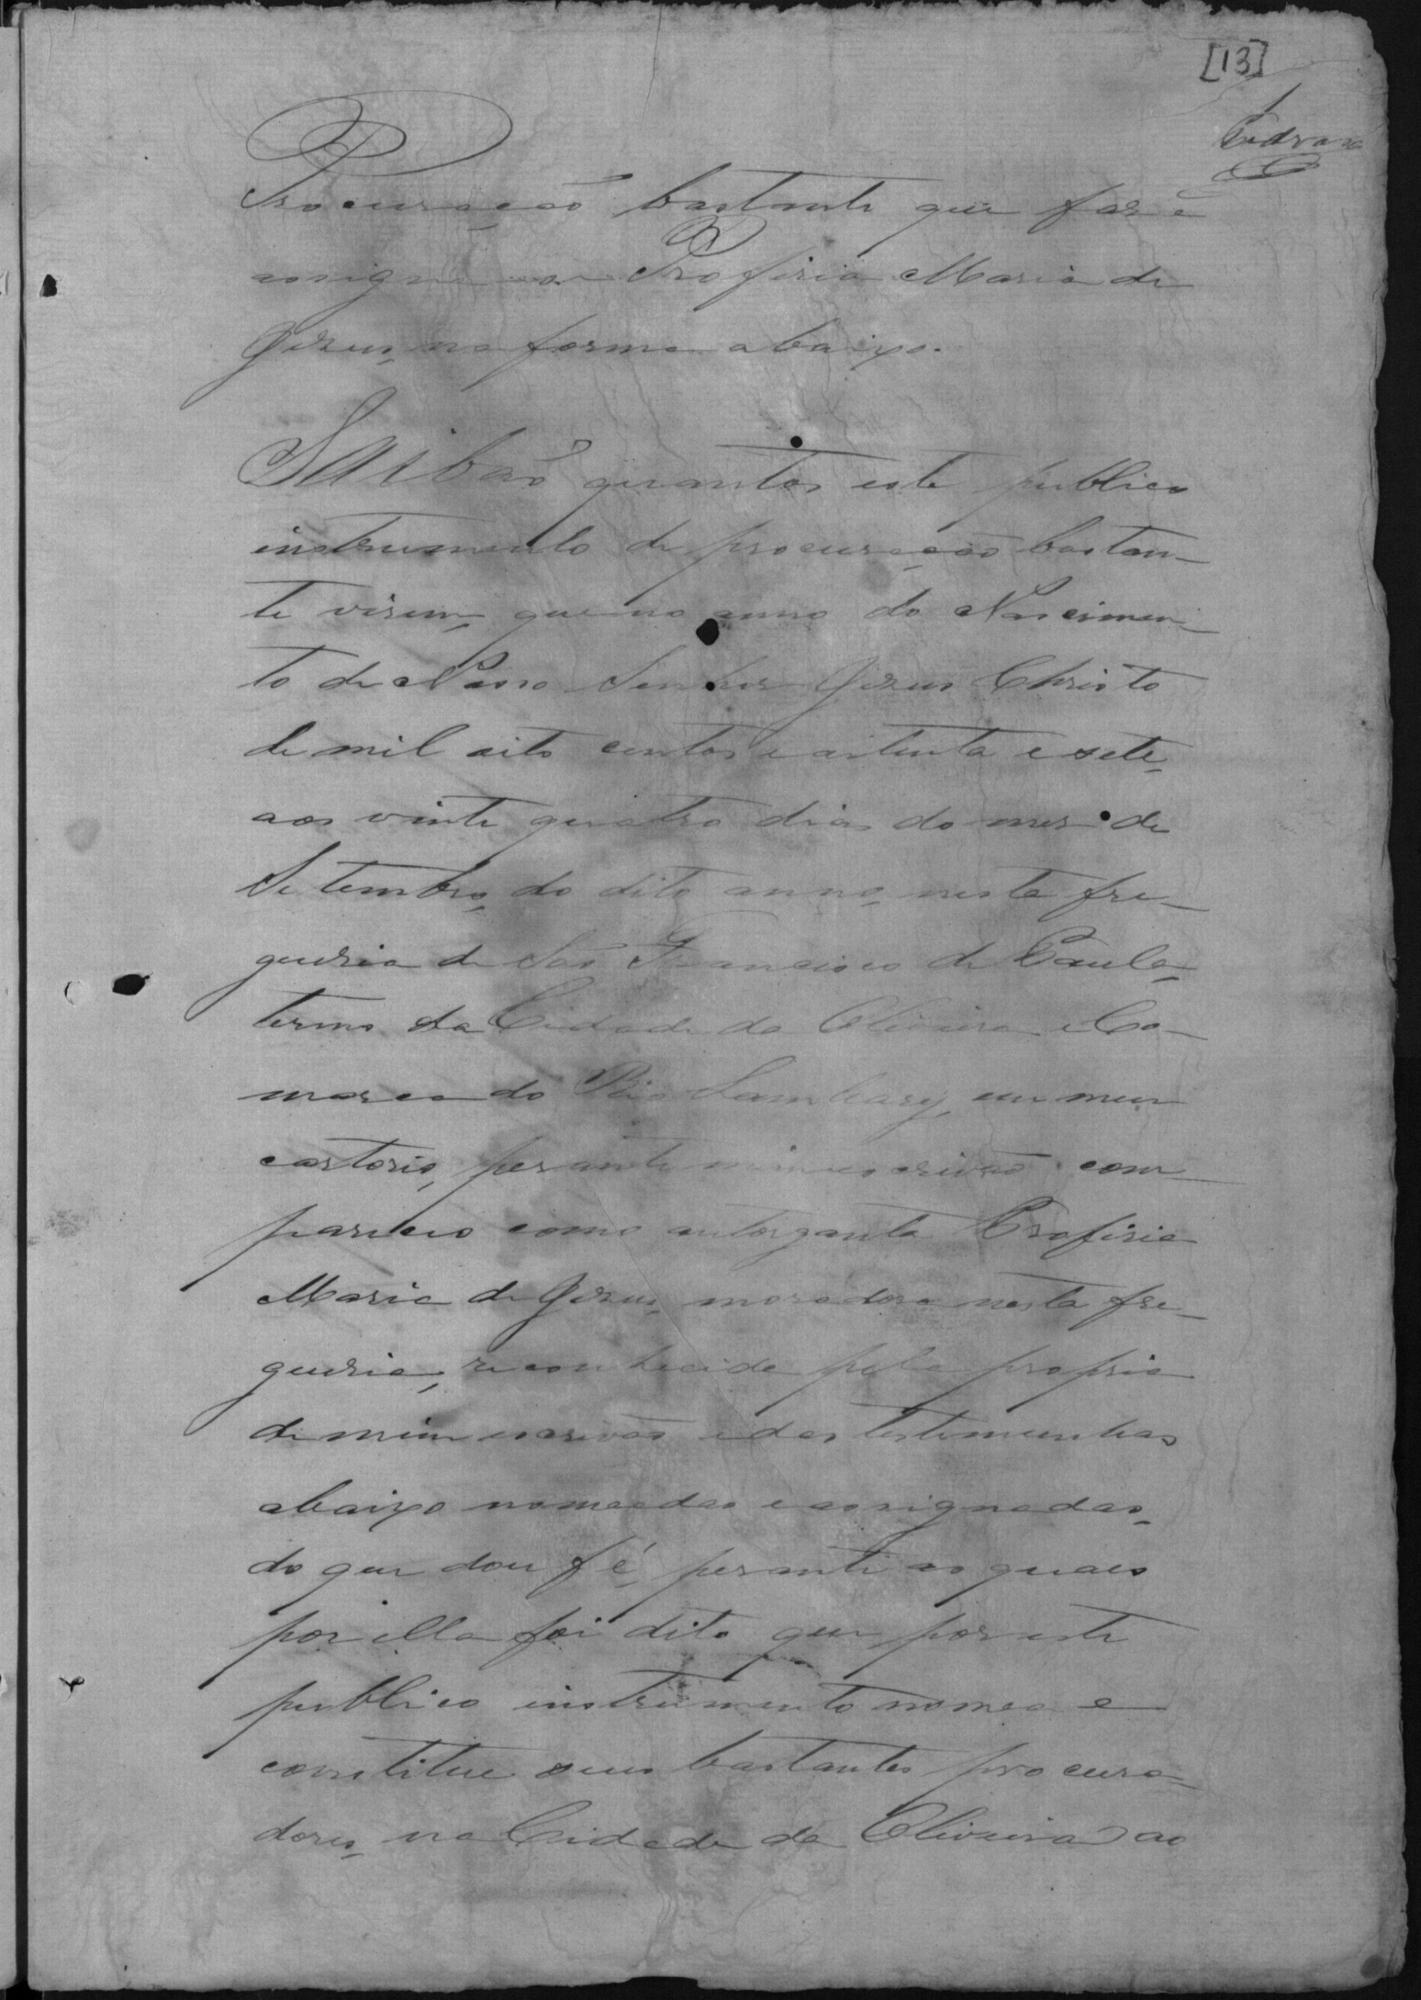 [13]
1
Pedroza
Procuração bastante que faz e
assigna a Profiria Maria de
Jezus, na forma abaixo.
SAibaõ quantos este publico
instrumento de procuração bastan-
te virem, que no anno do Nascimen-
to de Nosso Senhor Jezus Christo
de mil oito centos e oitenta e sete,
aos vinte quatro dias do mes de
Setembro, do dito anno, nesta fre-
guezia de São Francisco de Paula,
termo da Cidade da Oliveira e Co-
marca do Rio Lambary, em meu
cartorio, perante mim escrivaõ com-
pareceo como outorgante Profiria
Maria de Jezus, moradora nesta fre-
guezia, reconhecida pela propria
de mim escrivaõ e das testemunhas
abaixo nomeadas e assignadas,
do que dou fé, perante as quaes
por ella foi dito que por este
publico instrumento nomea e
constitue seus bastantes procura-
dores, na Cidade da Oliveira ao